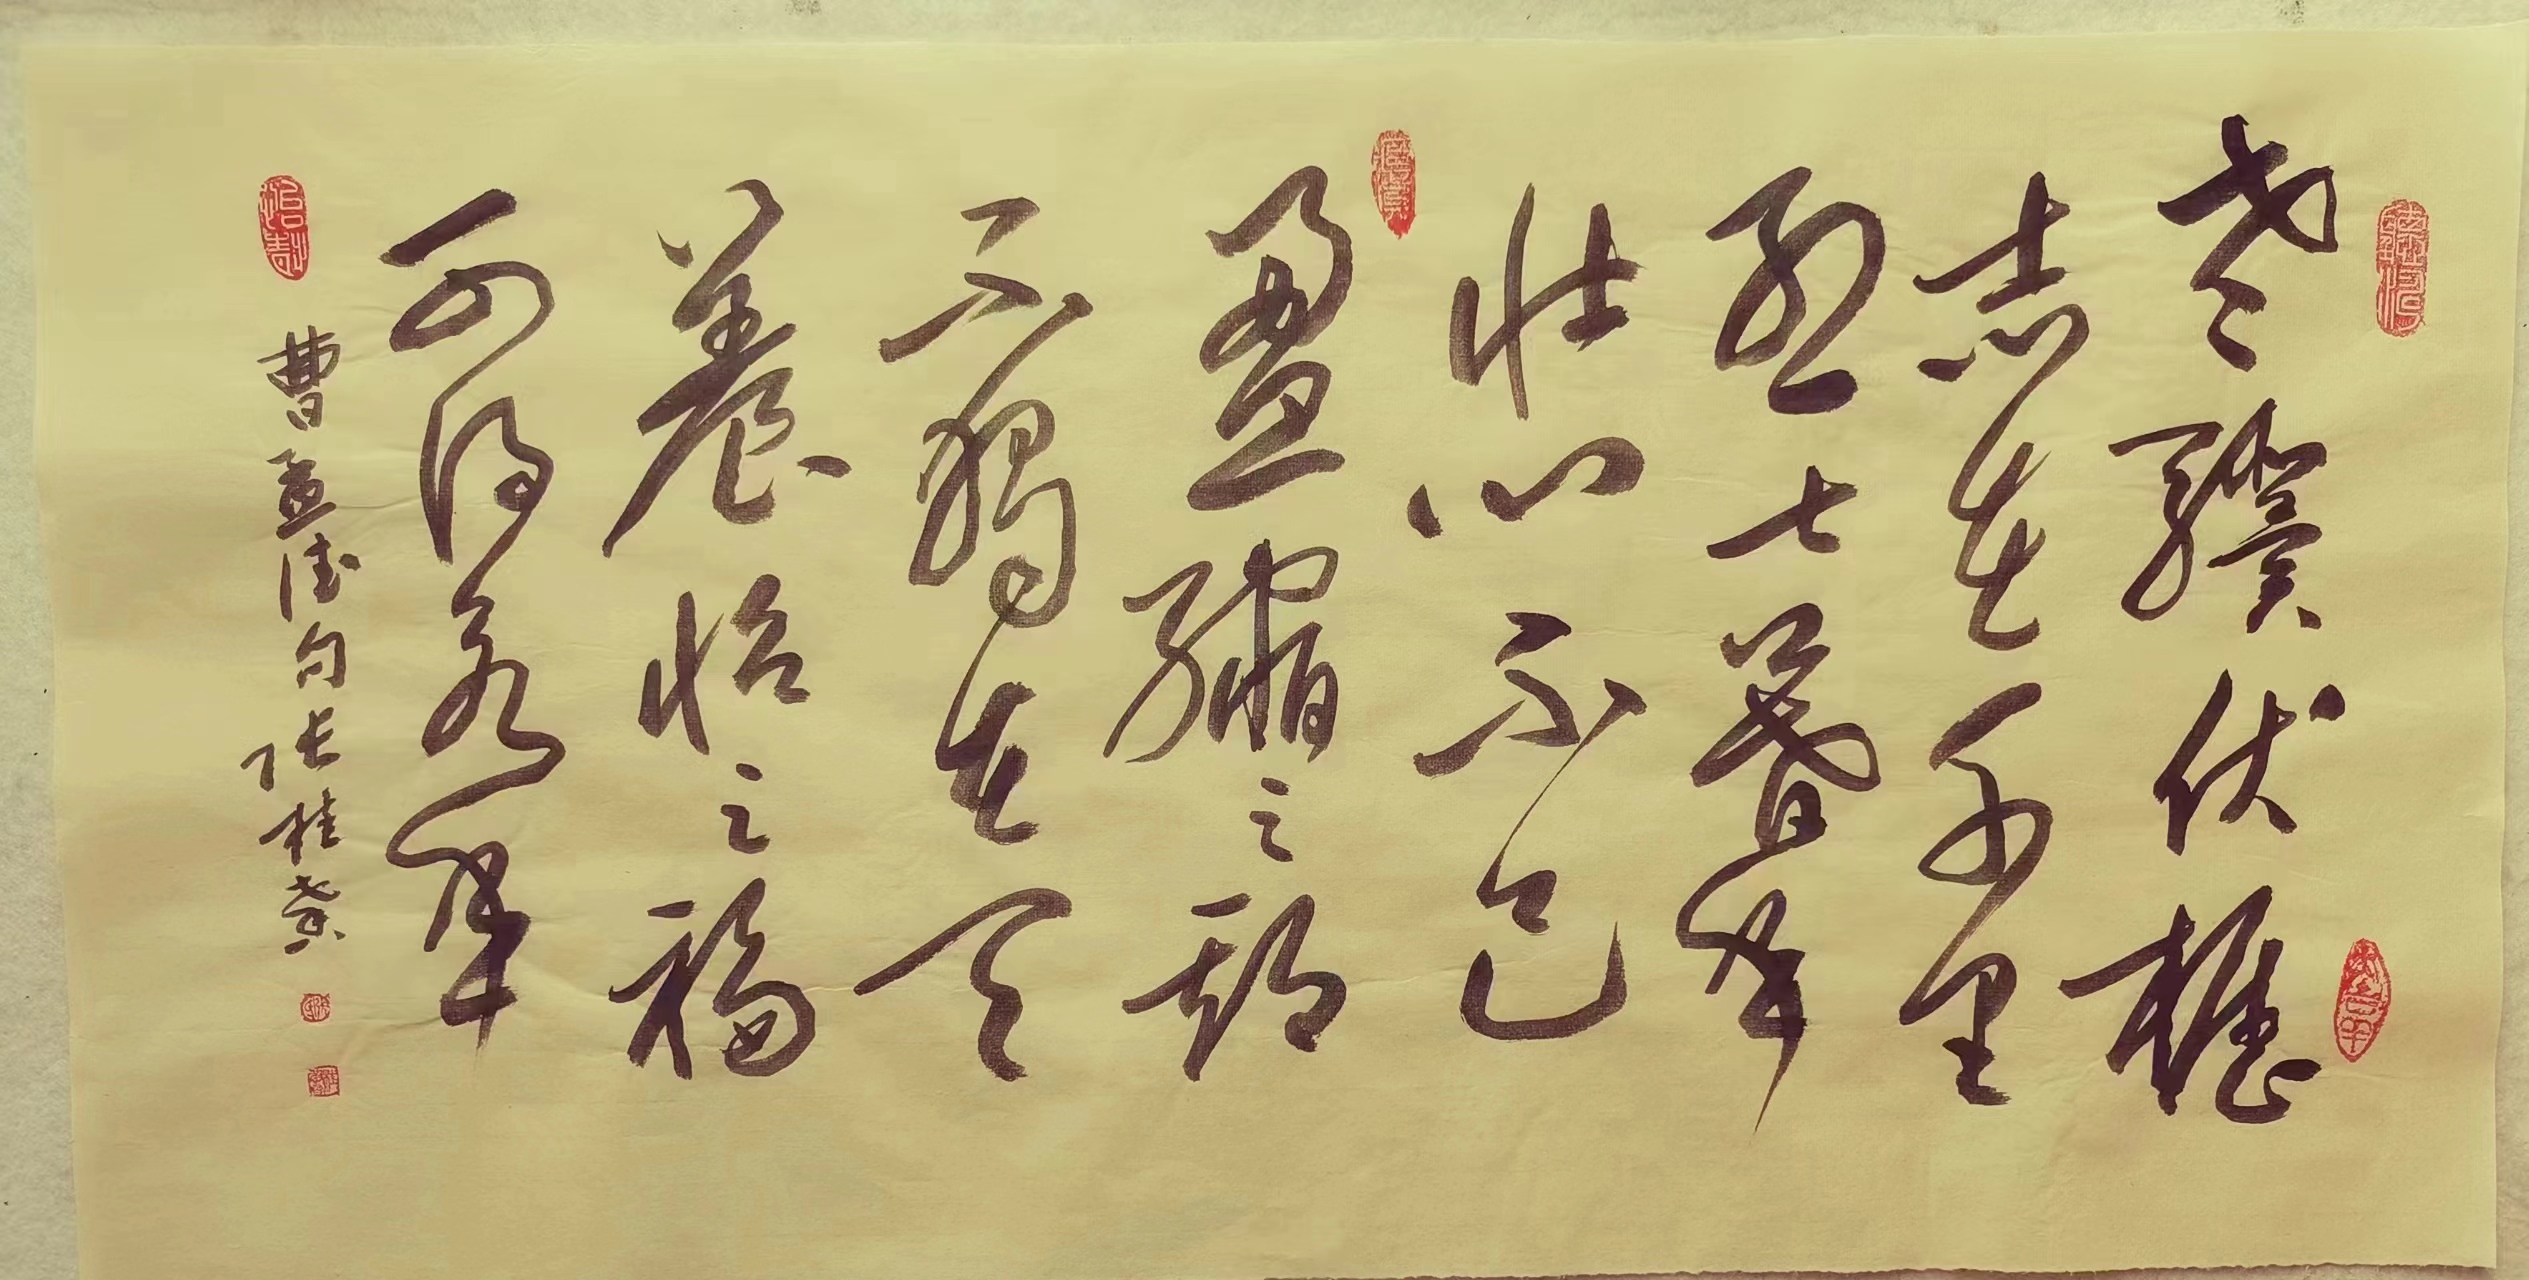 老驥伏櫪
志在千里
烈士暮年
壮心不已
盈縮之期
不獨在天
養怡之福
可得永年
曹孟德句 张桂